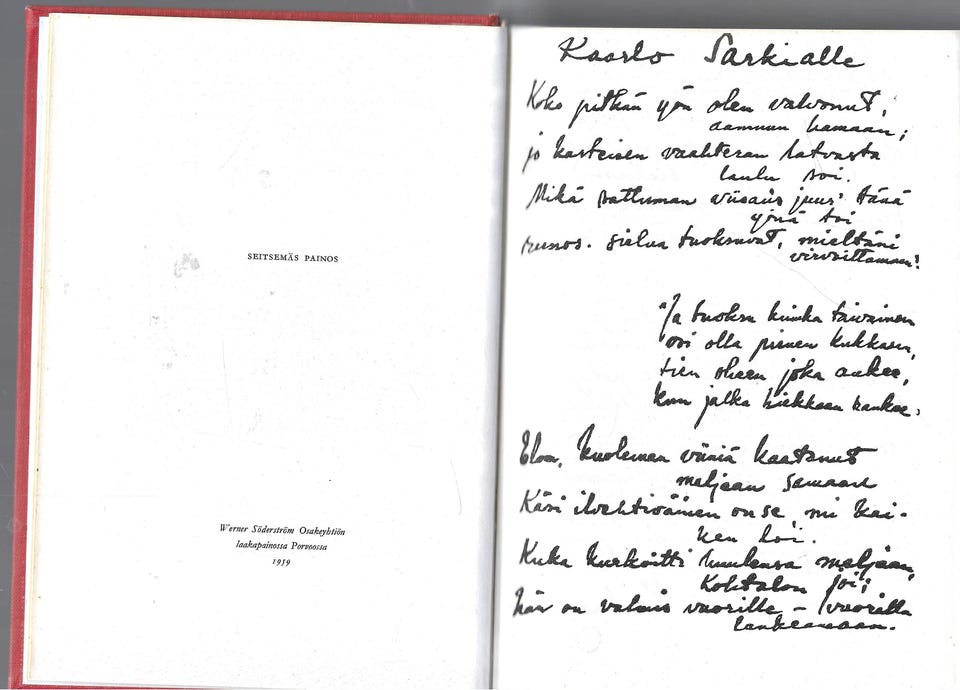 SEITSEMÄS PAINOS
Werner Söderström Osakeyhtiön
laakapainossa Porvoossa
1959
Kaarlo Sarkialle
Koko pitkän yön olen valvonut,
aamuun hamaan;
jo kasteisen vaahteran latvasta
laulu soi.
Mikä sattuman viisaus juur' tänä
yönä toi
runos. sielua tuoksuvat, mieltäni
virvoittamaan!
"Ja tuoksu kuinka taivainen
voi olla pienen kukkasen,
tien oheen joka aukee,
kun jalka hiekkaan raukee.
Elon, kuoleman viiniä kaatanut
maljaan samaan
Käsi ilvehtiväinen on se, mi kai-
ken loi.
Kuka kurkoitti huulensa maljaan,
Kohtalon joi;
hän on valmis vuorille – vuorilta
lankeamaan.